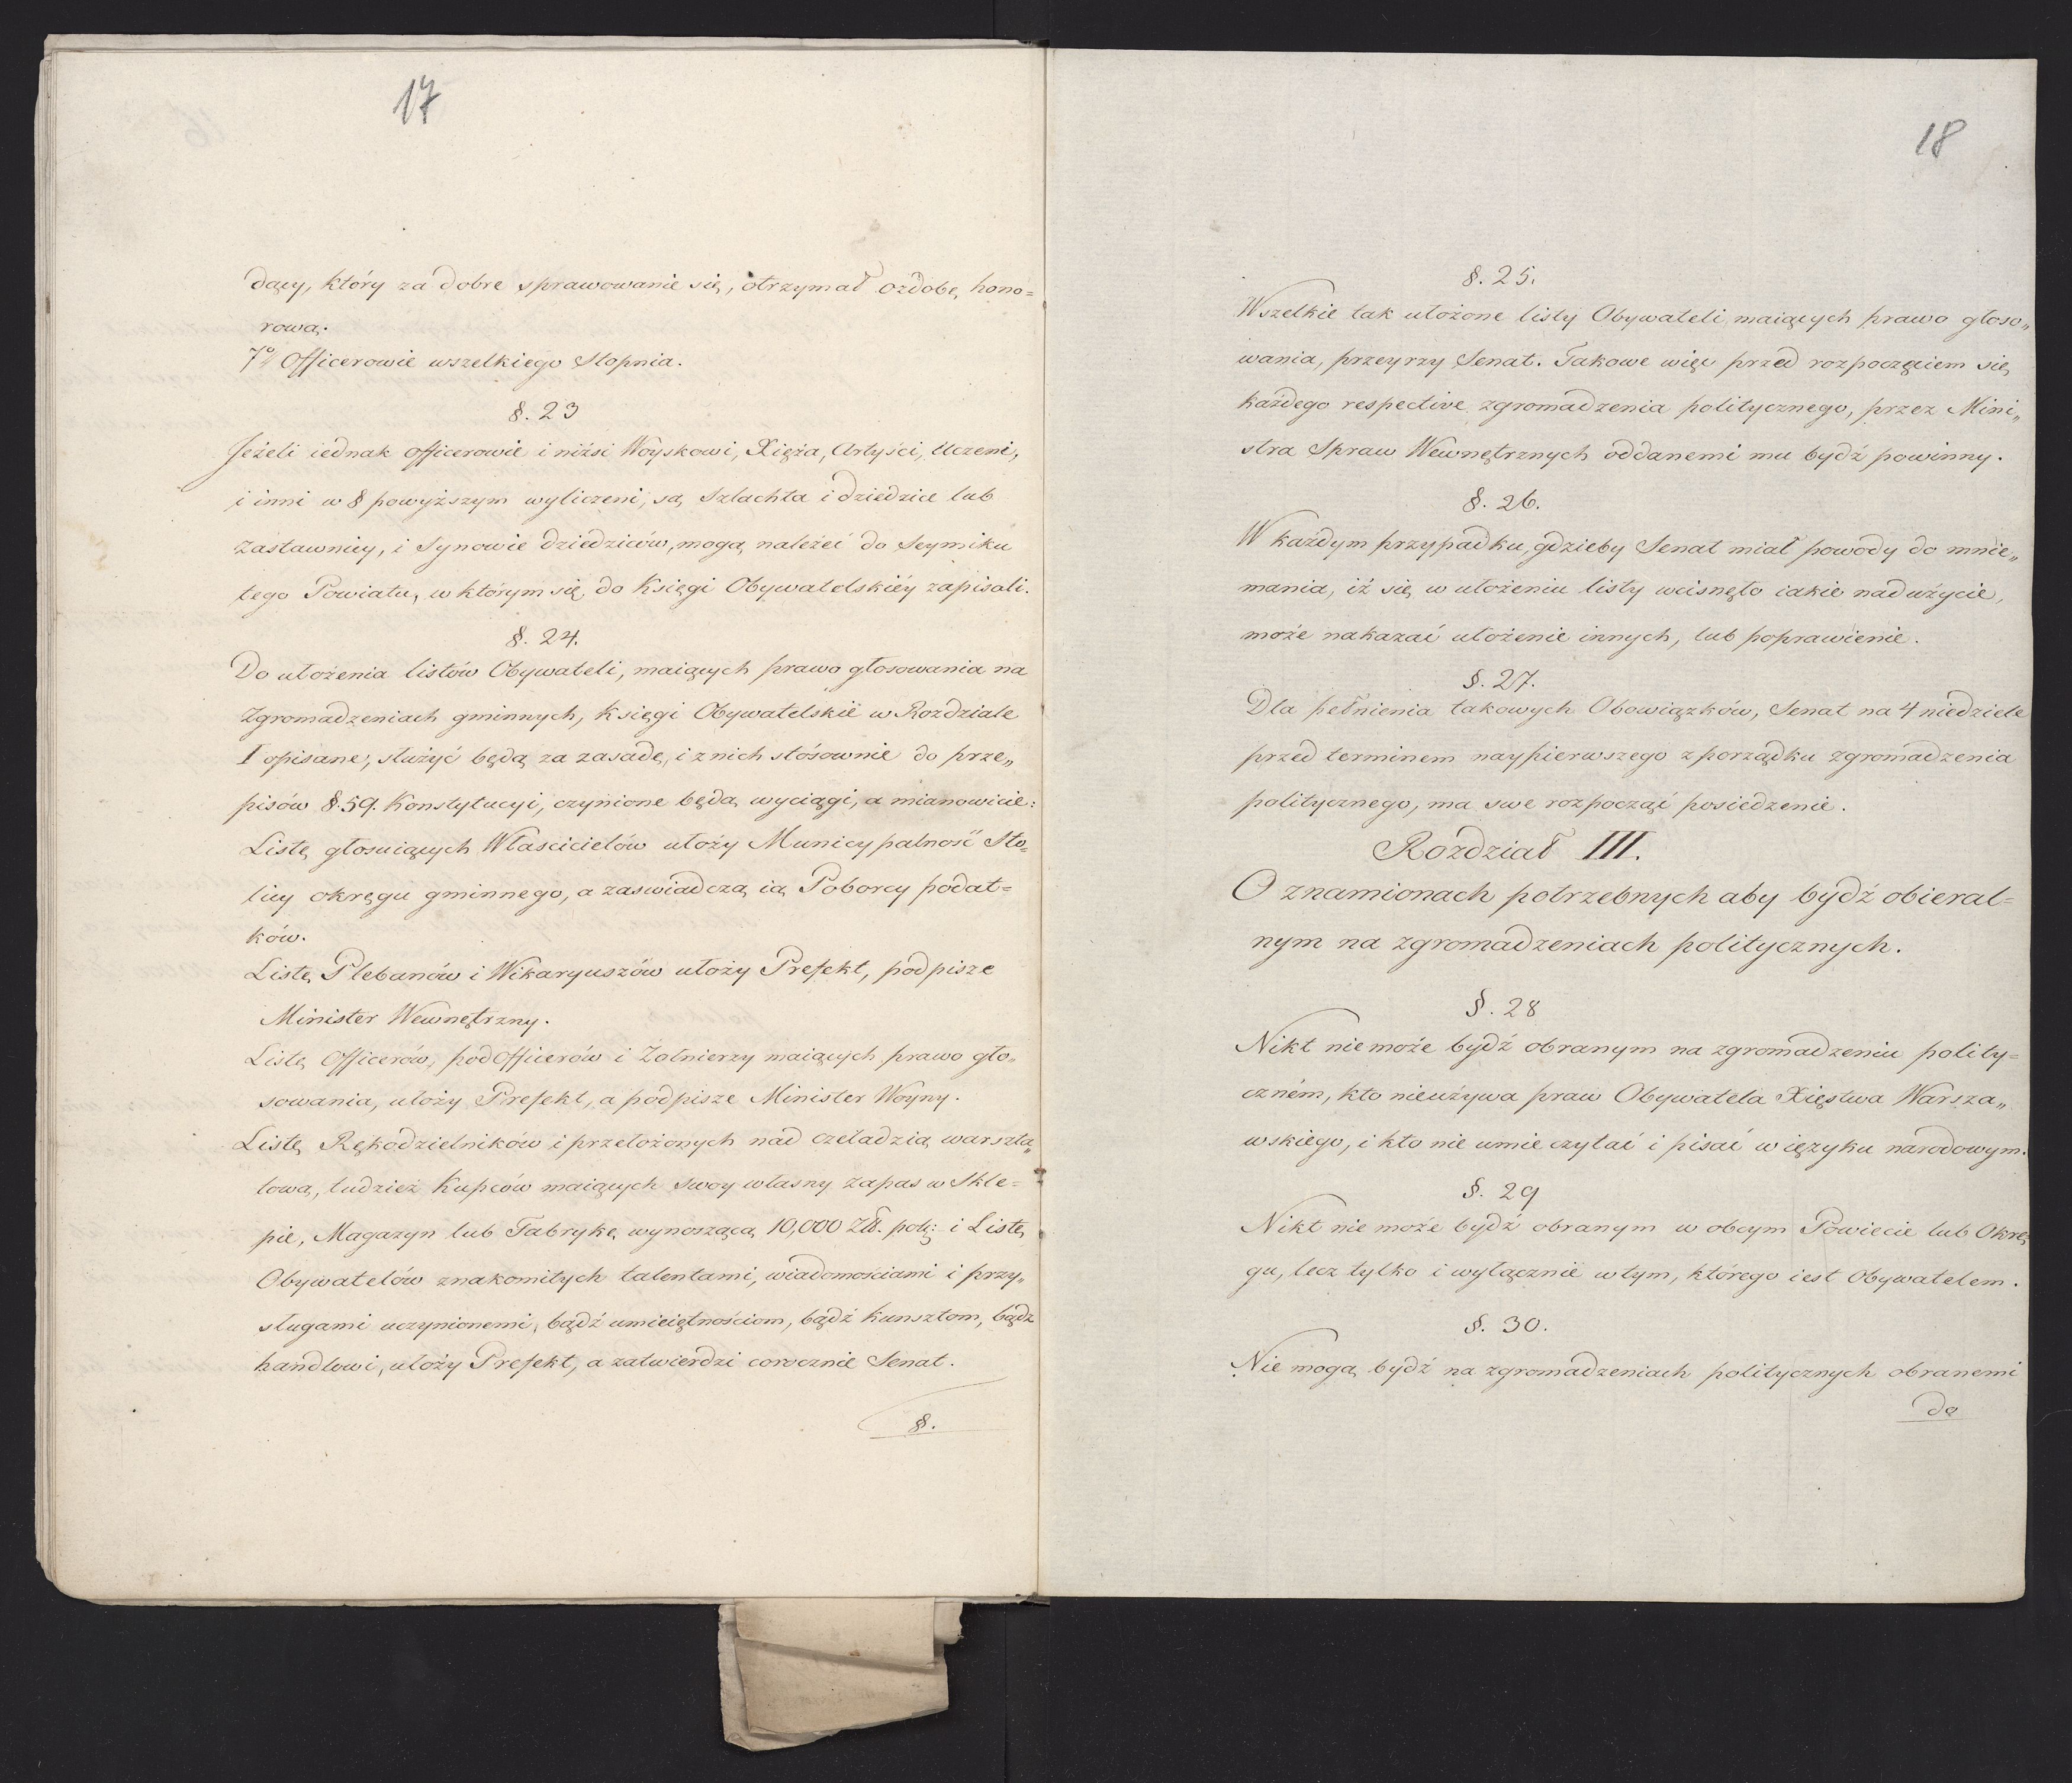 17
dący, który za dobre sprawowanie się, otrzymał ozdobę hono=
rową.
7º Officerowie wszelkiego Stopnia.
§. 23
Jeżeli iednak officerowie i niżsi Woyskowi, Xięża, Artyści, Uczeni,
i inni w § powyższym wyliczeni, są Szlachta i dziedzice lub
Zastawnicy, i Synowie dziedziców, mogą należeć do Seymiku
tego Powiatu, w którym się do Księgi Obywatelskiéy zapisali.
§. 24.
Do ułożenia listów Obywateli, maiących prawo głosowania na
Zgromadzeniach gminnych, księgi Obywatelskie w Rozdziale
I opisane, służyć będą za zasadę, i z nich stósownie do prze„
pisów §. 59. Konstytucyi, czynione będą wyciągi, a mianowicie:
Listę głosuiących Właścicielów ułoży Municypalność Sto=
licy okręgu gminnego, a zaswiadczą ią Poborcy podat=
ków.
Listę Plebanów i Wikaryuszów ułoży Prefekt, podpisze
Minister Wewnętrzny.
Listę Officerów, podofficerów i Zołnierzy maiących prawo gło„
sowania, ułoży Prefekt, a podpisze Minister Woyny.
Listę Rękodzielników i przełożonych nad czeladzią warszta„
tową, tudzież Kupców maiących swoy własny zapas w Skle=
pie, Magazyn lub Fabrykę wynoszącą 10,000 Zł. pol: i Listę
Obywatelów znakomitych talentami, wiadomościami i przy„
sługami uczynionemi, bądź umieiętnościom, bądź kunsztom, bądz
handlowi, ułoży Prefekt, a zatwierdzi corocznie Senat.
§.
18
§. 25.
Wszelkie tak ułożone listy Obywateli maiących prawo głoso„
wania, przeyrzy Senat. Takowe więc przed rozpoczęciem się
każdego respective zgromadzenia politycznego, przez Mini„
stra Spraw Wewnętrznych oddanemi mu bydź powinny.
§. 26.
W każdym przypadku, gdzieby Senat miał powody do mnie„
mania, iż się w ułożeniu listy wcisnęło iakie nadużycie,
może nakazać ułożenie innych, lub poprawienie.
§. 27.
Dla pełnienia takowych Obowiązków, Senat na 4 niedziele
przed terminem naypierwszego z porządku zgromadzenia
politycznego, ma swe rozpocząć posiedzenie.
Rozdział III.
O znamionach potrzebnych aby bydź obieral=
nym na zgromadzeniach politycznych.
§. 28
Nikt nie może bydź obranym na zgromadzeniu polity=
czném, kto nieużywa praw Obywatela Xięstwa Warsza„
wskiego, i kto nie umie czytać i pisać w ięzyku narodowym.
§. 29
Nikt nie może bydź obranym w obcym Powiecie lub Okrę
gu, lecz tylko i wyłącznie w tym, którego iest Obywatelem.
§. 30.
Nie mogą bydź na zgromadzeniach politycznych obranemi
do